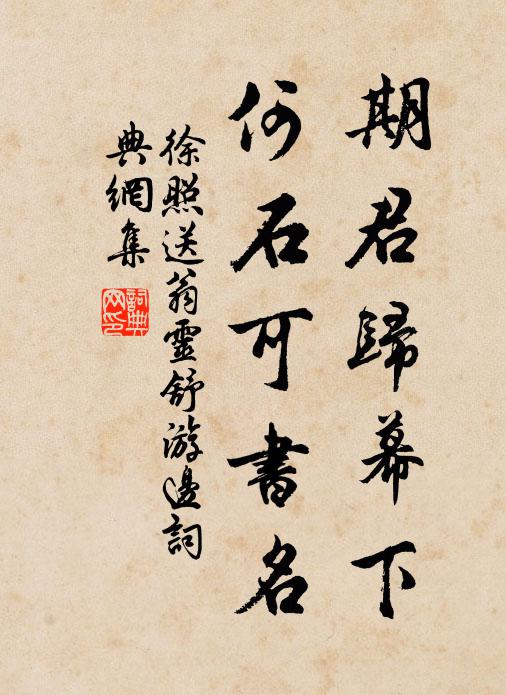 期君歸幕下
何石可書名
徐照送翁靈舒游邊詞
典網集
詞典
网印